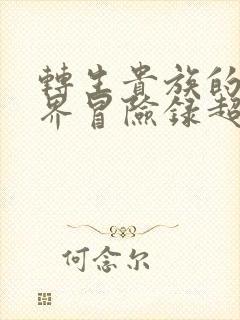 轉生貴族的
界冒險錄超
何念尔